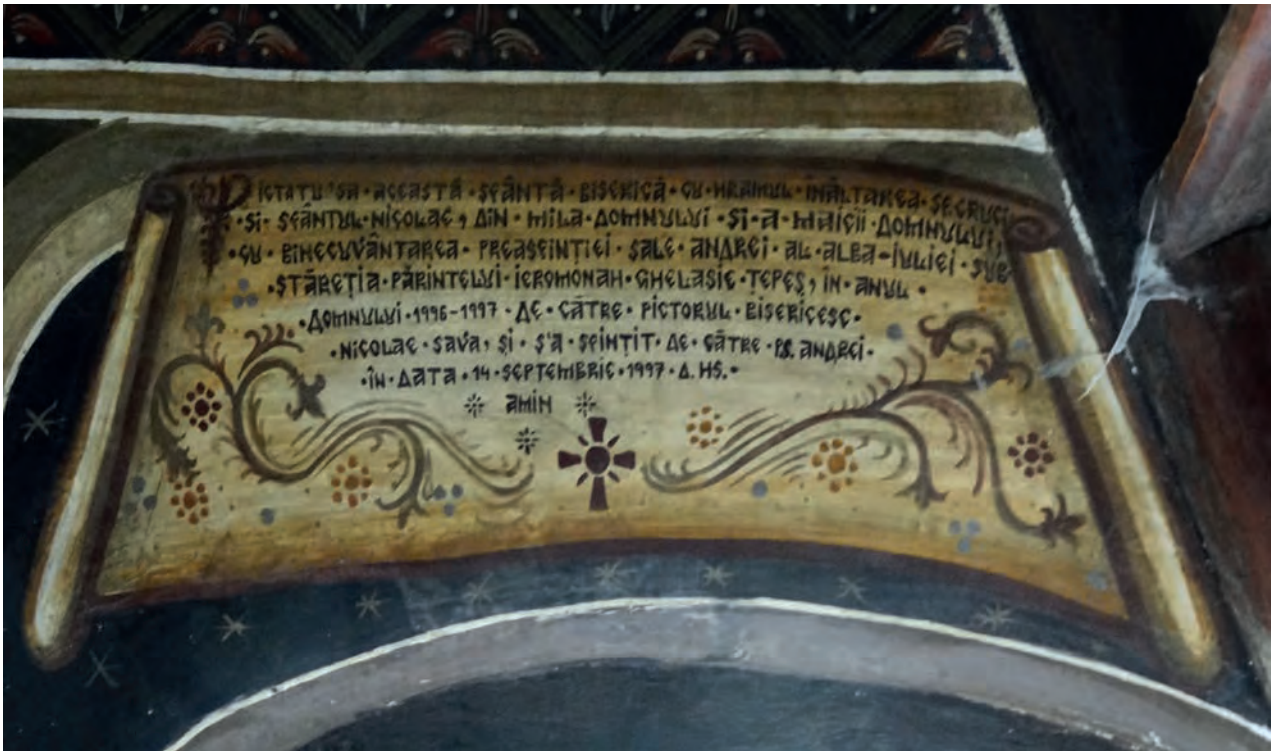 PICTATU'SA·ACEASTĂ·SFÂNTĂ·BISERICĂ·CU·HRAMUL·ÎNĂLȚAREA·SF.CRUCI
·ȘI·SFÂNTUL·NICOLAE, DIN·MILA·DOMNULUI·ȘI·A·MAICII·DOMNULUI,
·CU·BINECUVÂNTAREA·PREASFINȚIEI·SALE·ANDREI·AL·ALBA-IULIEI·SUB·
·STĂREȚIA·PĂRINTELUI·IEROMONAH·GHELASIE·ȚEPEȘ, ÎN·ANUL·
·DOMNULUI·1996-1997·DE·CĂTRE·PICTORUL·BISERICESC·
·NICOLAE·SAVA, ȘI·S'A·SFINȚIT·DE·CĂTRE·P.S. ANDREI·
·ÎN·DATA·14·SEPTEMBRIE·1997·D. HS.·
AMIN